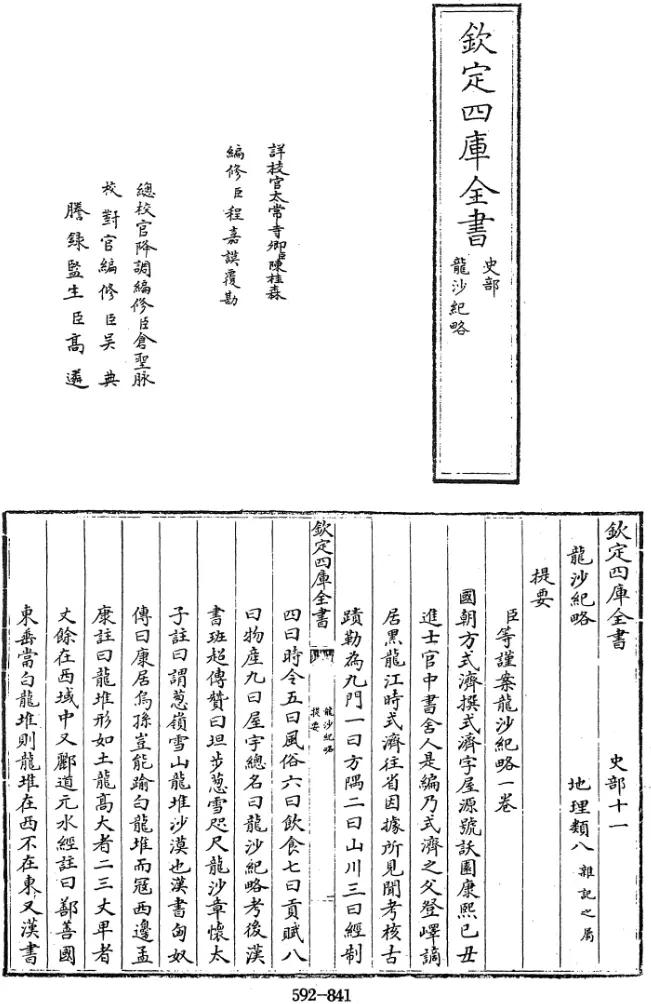 欽定四庫全書
史部
龍沙紀略
詳校官太常寺卿臣陳桂森
編修臣程嘉謨覆勘
總校官降調編修臣倉聖脉
校對官編修臣吳典
謄錄監生臣高遴
欽定四庫全書
史部十一
龍沙紀略
地理類八雜記之屬
提要
臣等謹案龍沙紀略一卷
國朝方式濟撰式濟字屋源號沃園康熙己丑
進士官中書舍人是編乃式濟之父登嶧謫
居黑龍江時式濟往省因據所見聞考核古
蹟勒為九門一曰方隅二曰山川三曰經制
欽定四庫全書
龍沙紀略
提要
一
四曰時令五曰風俗六曰飲食七曰貢賦八
曰物產九曰屋宇總名曰龍沙紀略考後漢
書班超傳贊曰坦步葱雪咫尺龍沙章懷太
子註曰謂葱嶺雪山龍堆沙漠也漢書匈奴
傳曰康居烏孫豈能踰白龍堆而寇西邊孟
康註曰龍堆形如土龍高大者二三丈卑者
丈餘在西域中又酈道元水經註曰鄯善國
東垂當白龍堆則龍堆在西不在東又漢書
592-841